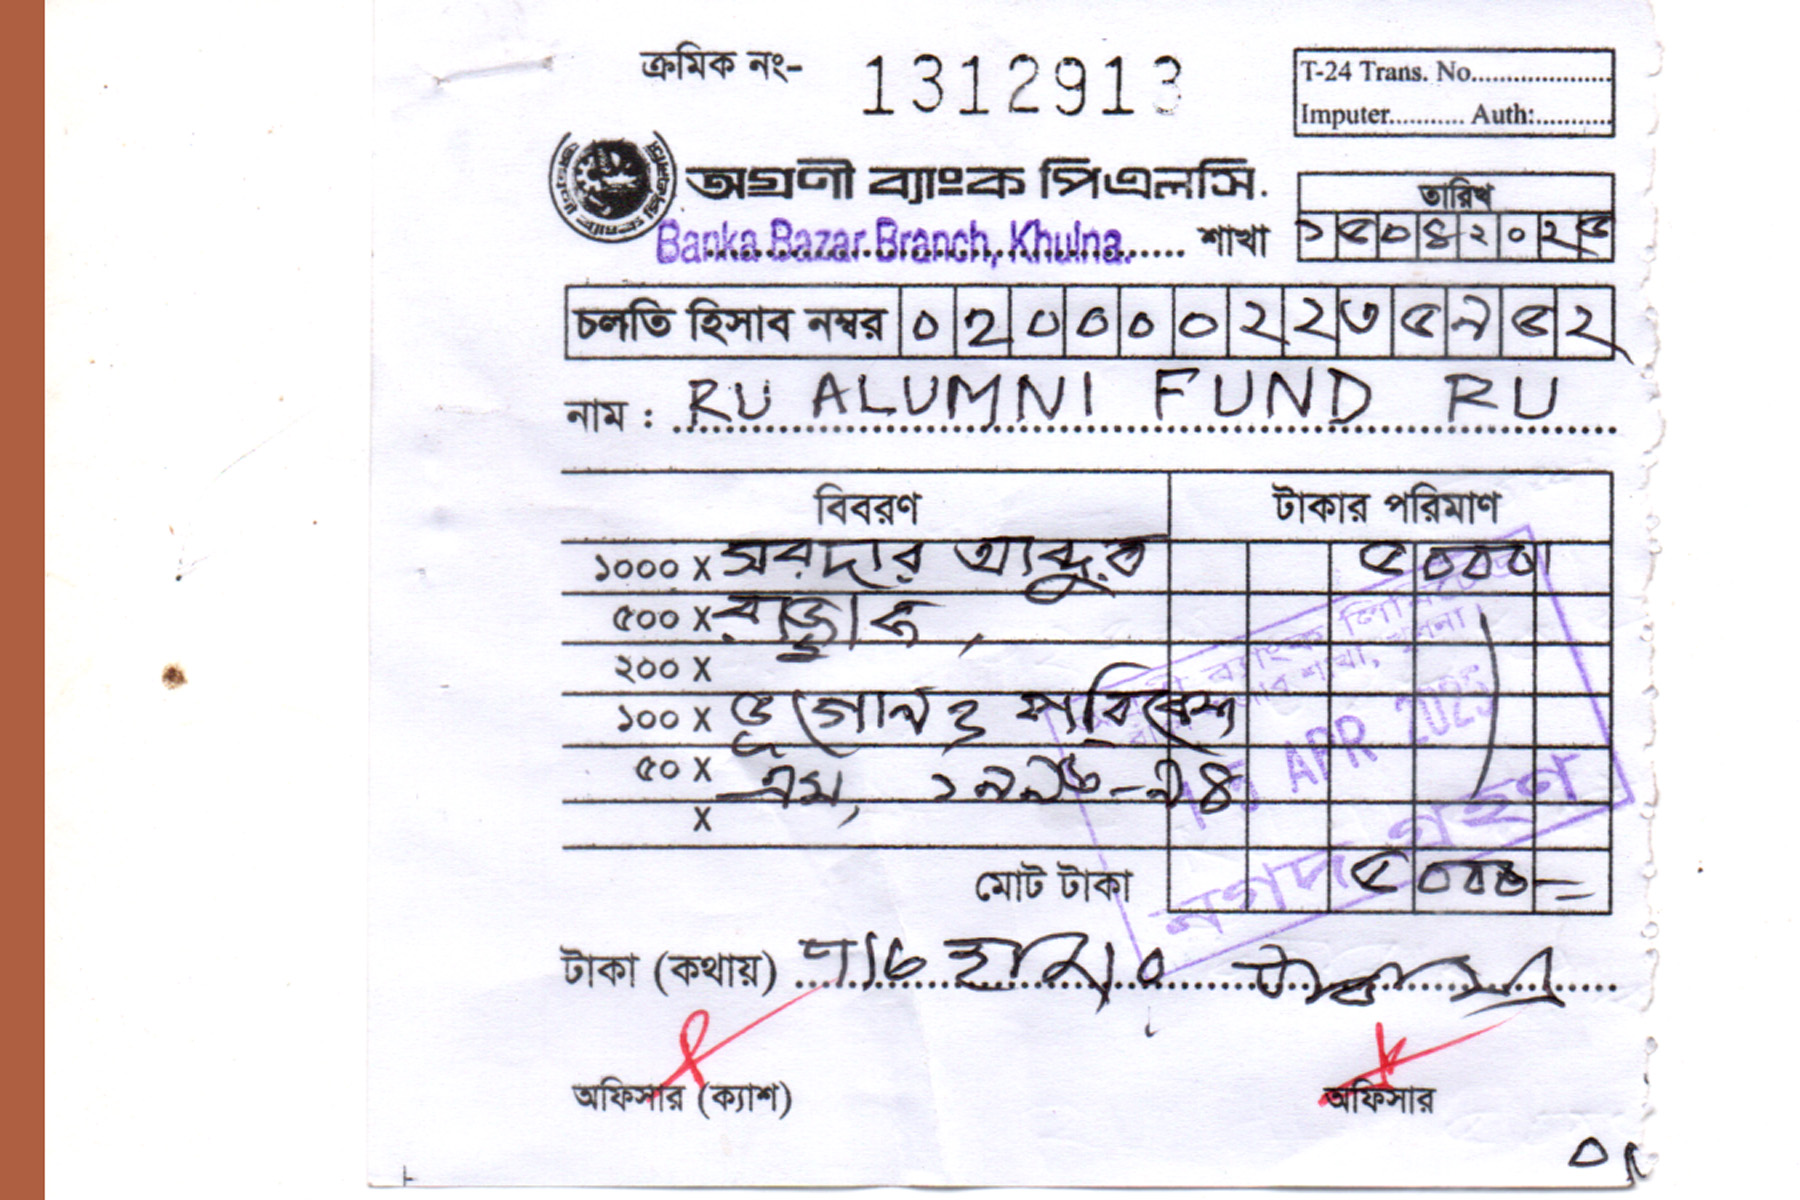 ক্রমিক নং- 1312913
T-24 Trans. No....................
Imputer........... Auth:...........
অগ্রণী ব্যাংক পিএলসি.
Banka Bazar Branch, Khulna. শাখা
তারিখ
১৫০৪২০২৫
চলতি হিসাব নম্বর ০২০০০০২২৩৫৯৫২
নাম : RU ALUMNI FUND RU
বিবরণ টাকার পরিমাণ
১০০০ X সরদার আব্দুর ৫০০০
৫০০ X রাজ্জাক,
২০০ X
১০০ X ভূগোল ও পরিবেশ
৫০ X এম, ১৯৯৩-৯৪
X
15 APR 2025
নগদ গ্রহণ
মোট টাকা ৫০০০=
টাকা (কথায়) পাঁচ হাজার টাকা মাত্র
অফিসার (ক্যাশ) অফিসার